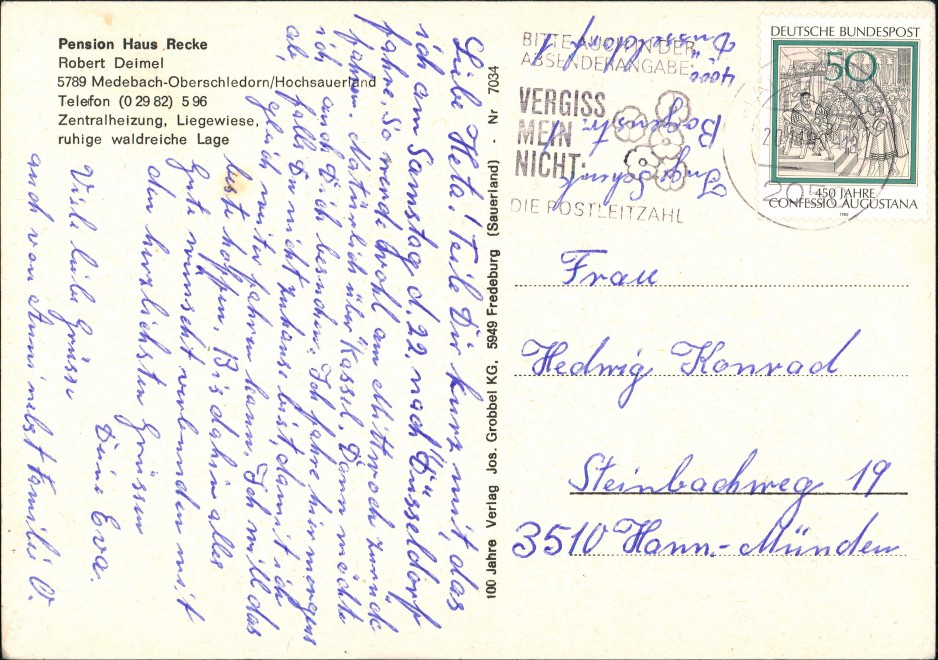 Pension Haus Recke
Robert Deimel
5789 Medebach-Oberschledorn/Hochsauerland
Telefon (0 29 82) 5 96
Zentralheizung, Liegewiese,
ruhige waldreiche Lage
Liebe Heta! Teile Dir kurz mit, das
ich am Samstag d. 22. nach Düsseldorf
fahre. So werde wohl am Mittwoch zurück
fahren. Natürlich über Kassel. Dann möchte
ich auch Dich besuchen. Ich fahre hier morgens
ab, falls Du nicht zuhause bist, damit ich
gleich weiter fahren kann. Ich will das
beste hoffen. Bis dahin alles
Gute wünscht verbunden mit
den herzlichsten Grüssen
Deine Eva.
Viele liebe Grüsse
auch von Anni nebst Familie V.
100 Jahre Verlag Jos. Grobbel KG, 5949 Fredeburg (Sauerland) - Nr 7034
BITTE AUCH IN DER
ABSENDERANGABE:
VERGISS
MEIN
NICHT:
DIE POSTLEITZAHL
4000
Düsseldorf
DEUTSCHE BUNDESPOST
50
450 JAHRE
CONFESSIO AUGUSTANA
1980
Frau
Hedwig Konrad
Steinbachweg 19
3510 Hann.-Münden